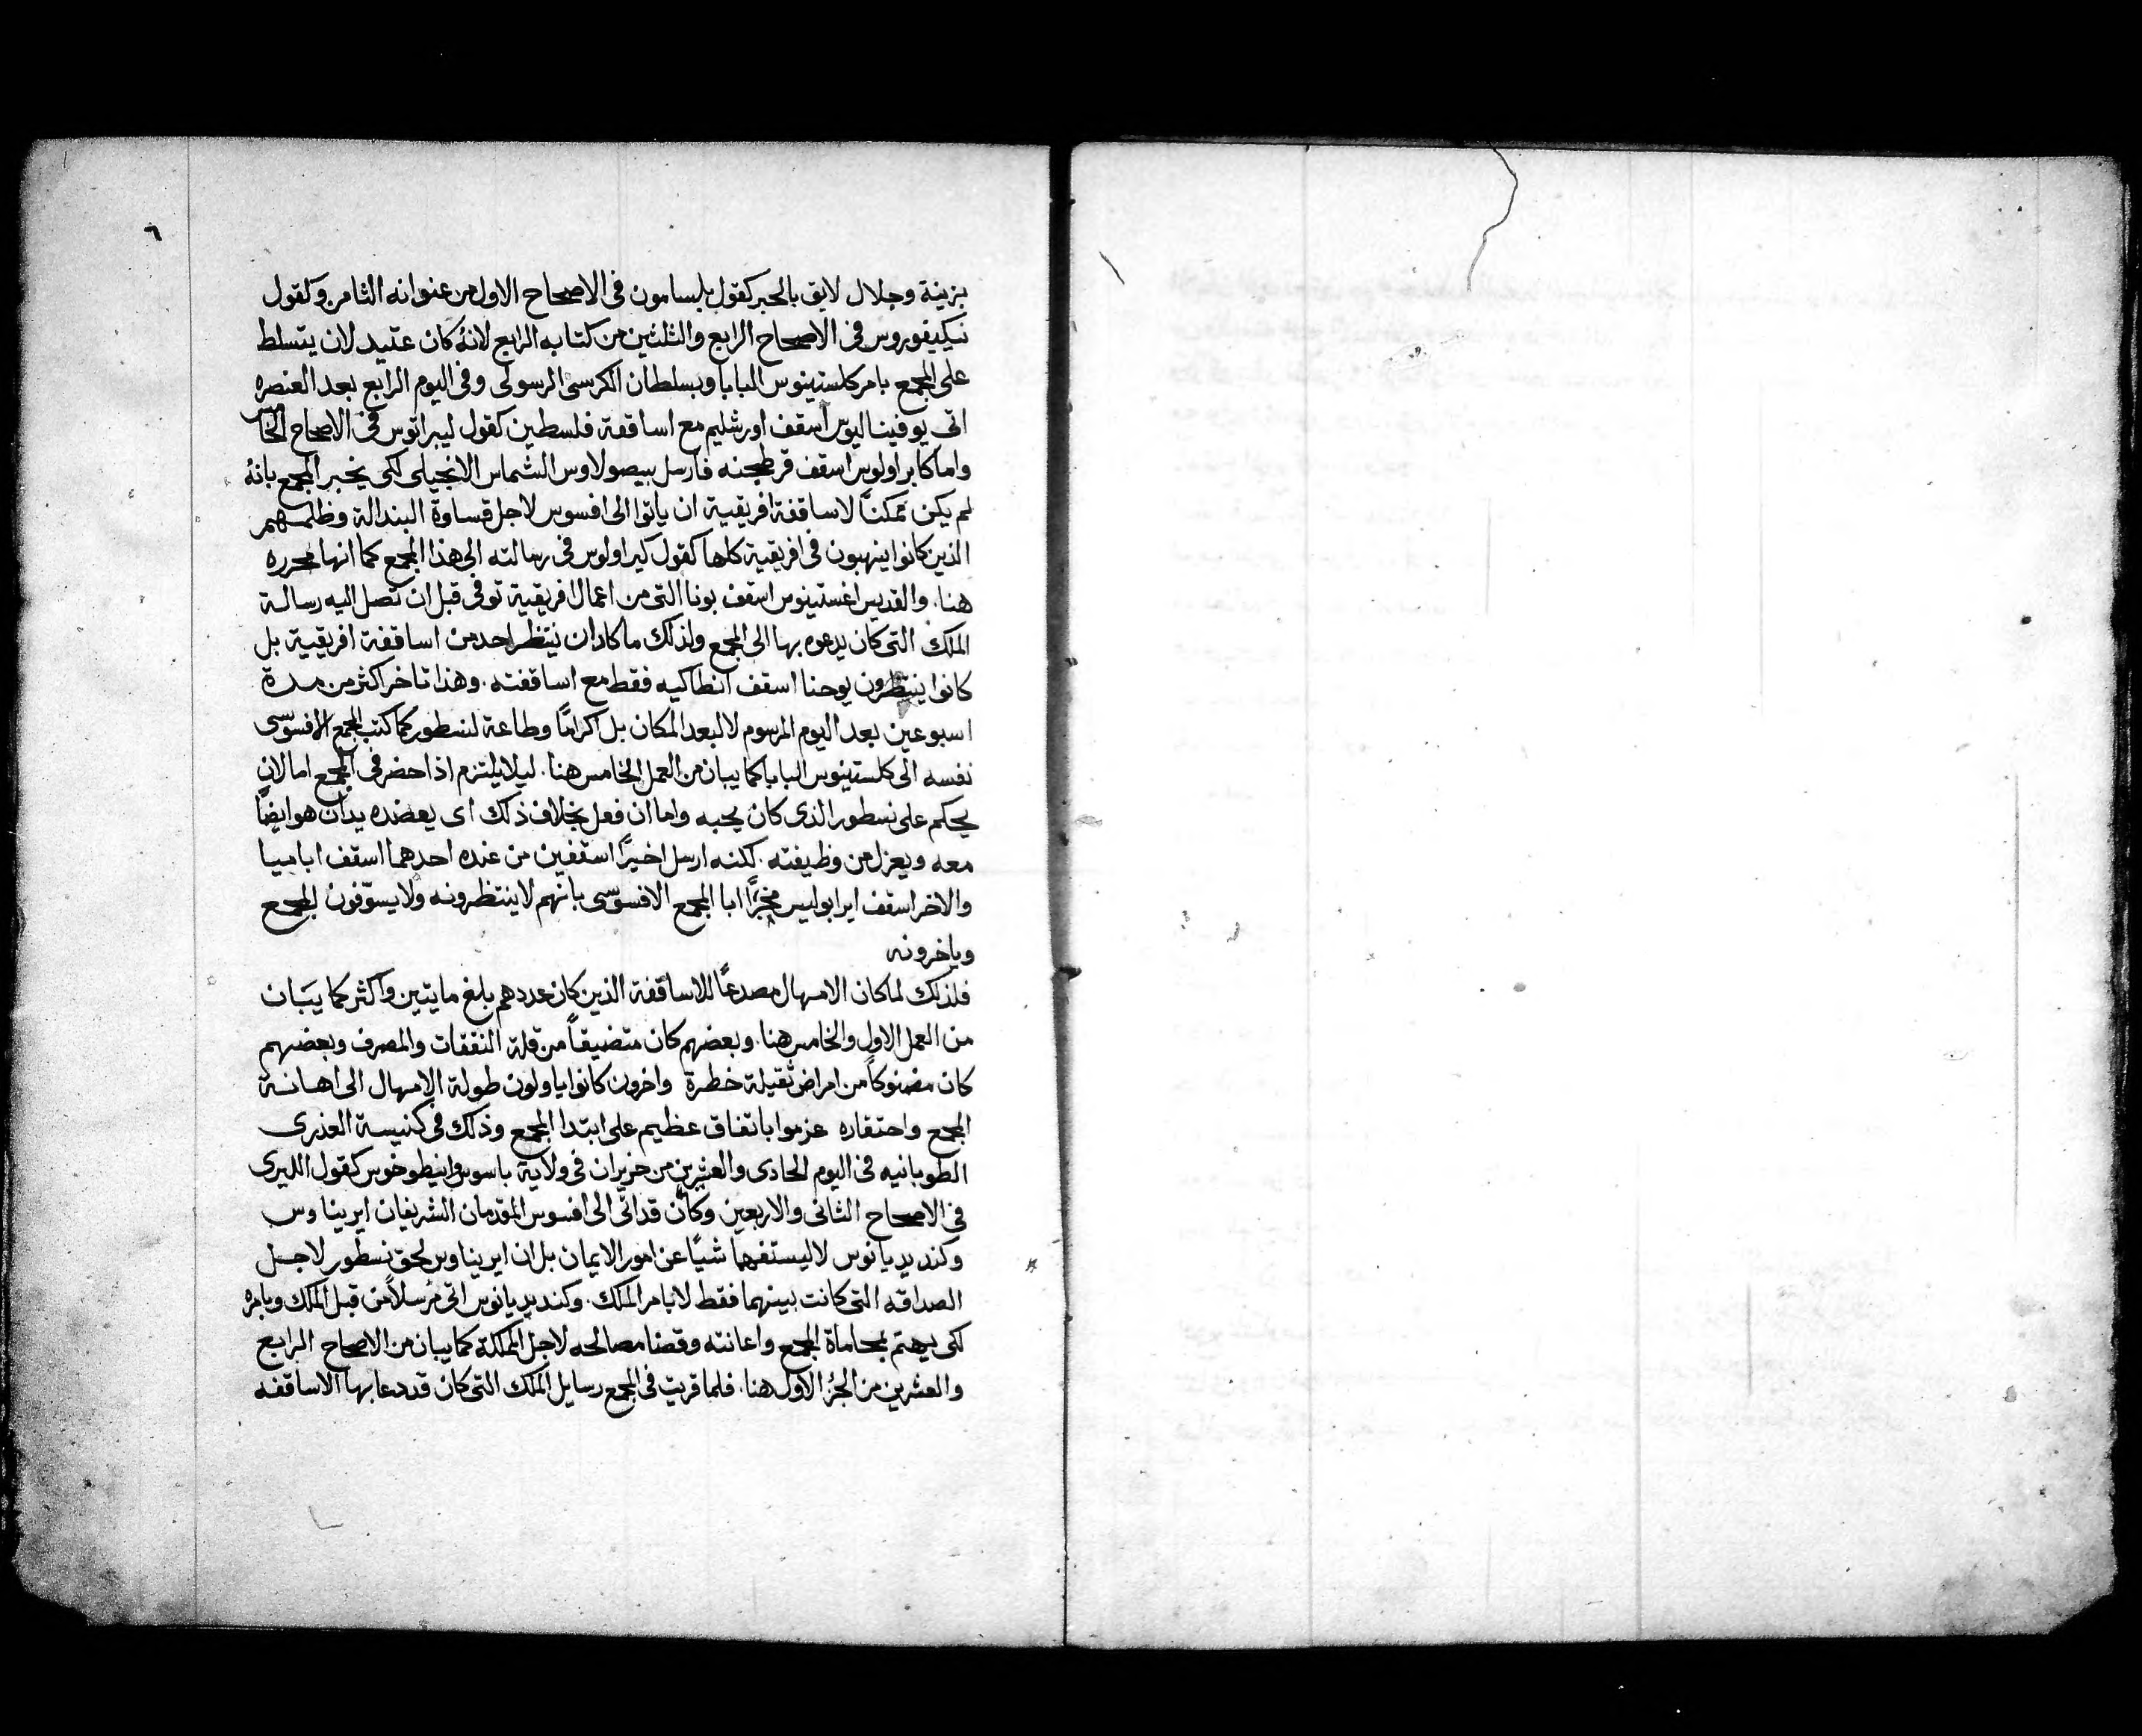 ٦
بزينة وجلال لايق بالحبر كقول بلسامون فى الاصحاح الاول من عنوانه الثامن وكقول
نيكيفوروس فى الاصحاح الرابع والثلثين من كتابه الرابع لانهُ كان عتيد لان يتسلط
على المجمع بامر كلستينوس البابا وبسلطان الكرسى الرسولى وفى اليوم الرابع بعد العنصره
اتى يوفيناليوس اسقف اورشليم مع اساقفة فلسطين كقول ليبراتوس فى الاصحاح الخامس
واما كابراولوس اسقف قرطجنه فارسل بيصولاوس الشماس الانجيلى لكى يخبر المجمع بانهُ
لم يكن ممكنًا لاساقفة افريقية ان ياتوا الى افسوس لاجل قساوة البندالة وظلمهم
الذين كانوا ينهبون فى افريقية كلها كقول كبراولوس فى رسالته الى هذا المجمع كما انها محرره
هنا. والقديس اغستينوس اسقف بونا التى من اعمال افريقية توفى قبل ان تصل اليه رسالة
الملك التى كان يدعوه بها الى المجمع ولذلك ما كادان ينتظر احد من اساقفة افريقية بل
كانوا ينتظرون يوحنا اسقف انطاكيه فقط مع اساقفته. وهذا تاخر اكثر من مدة
اسبوعين بعد اليوم المرسوم لا لبعد المكان بل اكرامًا وطاعة لنسطور كما كتب المجمع الافسوسى
نفسه الى كلستينوس البابا كما يبان من العمل الخامس هنا. ليلا يلتزم اذا حضر فى المجمع اما لان
يحكم على نسطور الذى كان يحبه واما ان فعل بخلاف ذلك اى يعضده يدان هو ايضًا
معه ويعزل من وظيفته. لكنه ارسل اخيرًا اسقفين من عنده احدهما اسقف اباميا
والاخر اسقف ايرابوليس مخبرًا ابا المجمع الافسوسى بانهم لا ينتظرونه ولا يسوّفون المجمع
وياخرونه
فلذلك لما كان الامهال مصدعًا للاساقفة الذين كان عددهم بلغ مايتين واكثر كما يبان
من العمل الاول والخامس هنا. وبعضهم كان متضيقاً من قلة النفقات والمصرف وبعضهم
كان مضنوكاً من امراض ثقيلة خطرة واخرون كانوا ياولون طولة الامهال الى اهانة
المجمع واحتقاره عزموا باتفاق عظيم على ابتدا المجمع وذلك فى كنيسة العذرى
الطوبانيه فى اليوم الحادى والعشرين من حزيران فى ولاية باسوس وانيطوخوس كقول الليرى
فى الاصحاح الثانى والاربعين وكان قد اتى الى افسوس المقدمان الشريفان ايريناوس
وكنديديانوس لا ليستفهما شيًا عن امور الايمان بل ان ايريناوس لحق نسطور لاجل
الصداقه التى كانت بينهما فقط لا بامر الملك. وكنديديانوس اتى مُرسلاً من قبل الملك وبامره
لكى يهتم بمحاماة المجمع واعانته وقضا مصالحه لاجل المملكة كما يبان من الاصحاح الرابع
والعشرين من الجزُ الاول هنا. فلما قريت فى المجمع رسايل الملك التى كان قد دعا بها الاساقفه